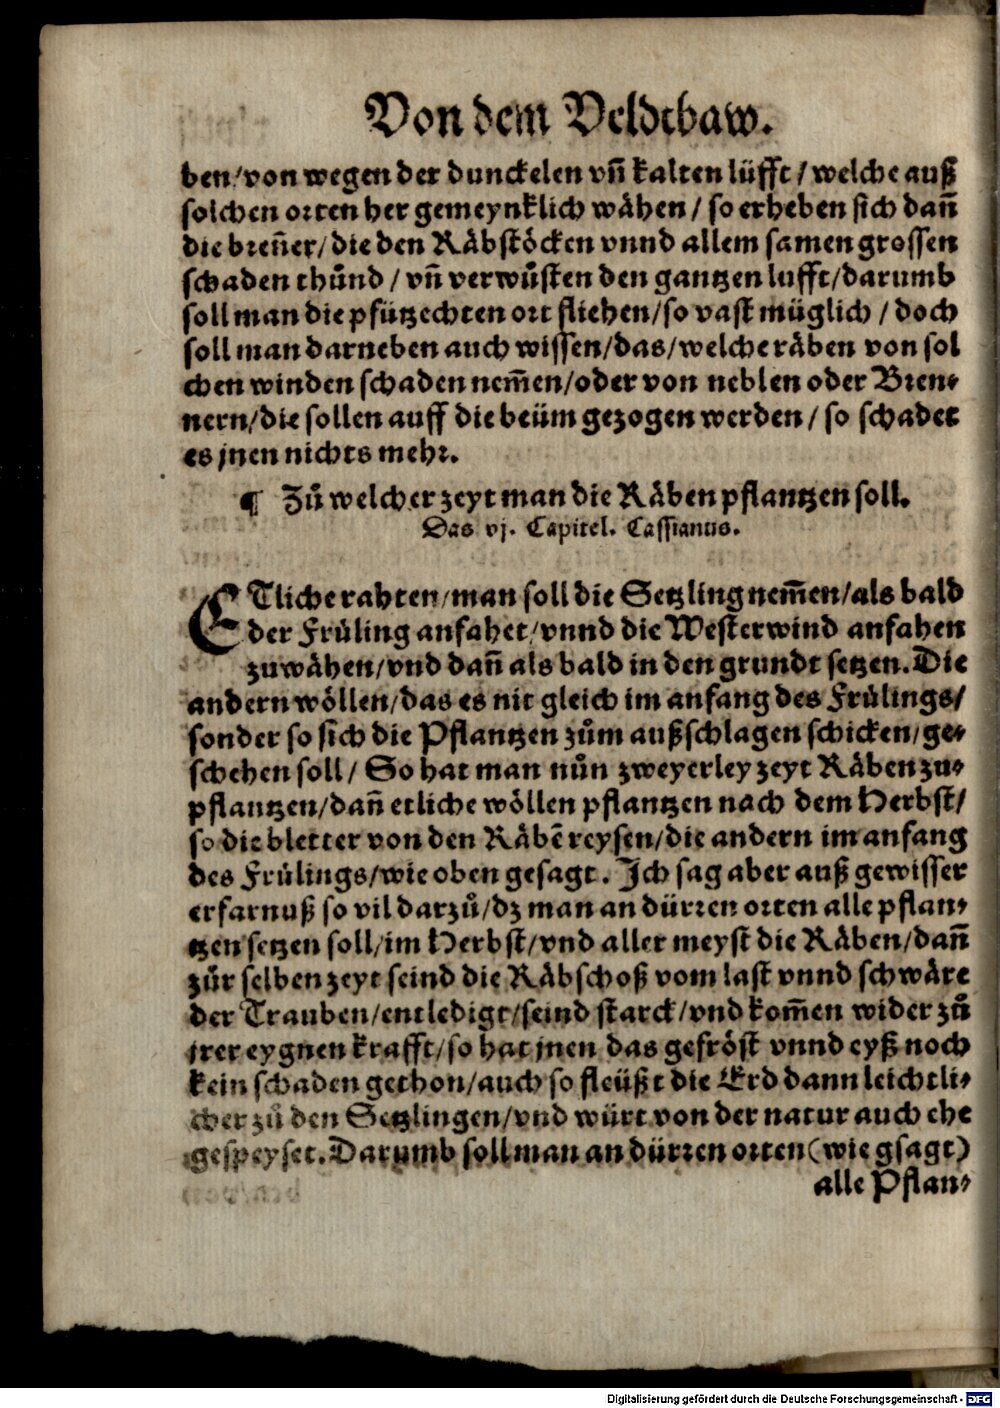 Von dem Veldtbaw.
ben/von wegen der dunckelen vñ kalten lüfft/welche auß
solchen orten her gemeynklich wähen/so erheben sich dañ
die breñer/die den Räbstöcken vnnd allem samen grossen
schaden thůnd/vñ verwůsten den gantzen lufft/darumb
soll man die pfützechten ort fliehen/so vast müglich/doch
soll man darneben auch wissen/das/welche räben von sol
chen winden schaden nem̃en/oder von neblen oder Bren⸗
nern/die sollen auff die beüm gezogen werden/so schadet
es jnen nichts mehr.
¶ Zů welcher zeyt man die Räben pflantzen soll.
Das vj. Capitel. Cassianus.
ETliche rahten/man soll die Setzling nem̃en/als bald
der Früling anfahet/vnnd die Westerwind anfahen
zuwähen/vnd dañ als bald in den grundt setzen. Die
andern wöllen/das es nit gleich im anfang des Frülings/
sonder so sich die Pflantzen zům außschlagen schicken/ge⸗
schehen soll/So hat man nůn zweyerley zeyt Räben zu⸗
pflantzen/dañ etliche wöllen pflantzen nach dem Herbst/
so die bletter von den Räbẽ reysen/die andern im anfang
des Frülings/wie oben gesagt. Ich sag aber auß gewisser
erfarnuß so vil darzů/dz man an dürren orten alle pflan⸗
tzen setzen soll/im Herbst/vnd aller meyst die Räben/dañ
zůr selben zeyt seind die Räbschoß vom last vnnd schwäre
der Trauben/entledigt/seind starck/vnd kom̃en wider zů
jrer eygnen krafft/so hat jnen das gefröst vnnd eyß noch
kein schaden gethon/auch so fleüßt die Erd dann leichtli⸗
cher zů den Setzlingen/vnd würt von der natur auch ehe
gespeyset. Darumb soll man an dürren orten (wie gsagt)
alle Pflan⸗
Digitalisierung gefördert durch die Deutsche Forschungsgemeinschaft - DFG